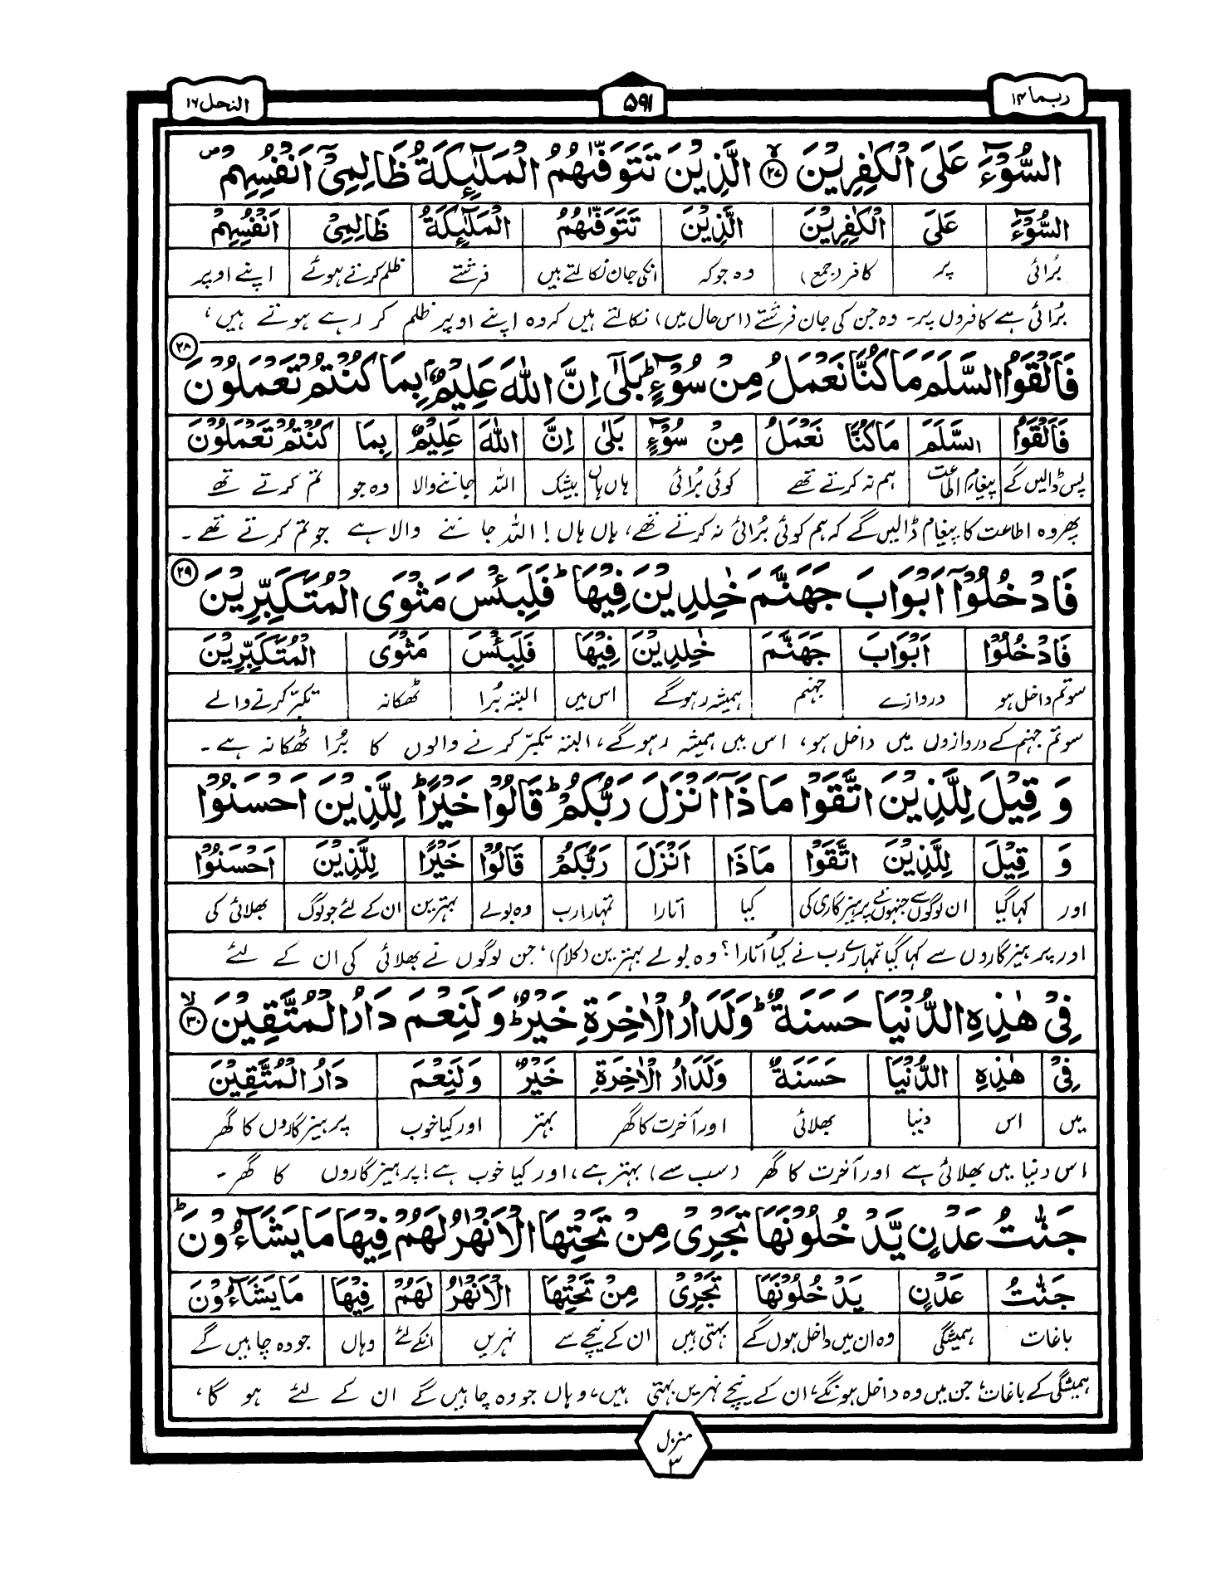 ربما ۱۴
۵۹۱
النحل ۱۶
السُّوْٓءَ عَلَى الْكٰفِرِيْنَ ۙ﴿۲۷﴾ الَّذِيْنَ تَتَوَفّٰىهُمُ الْمَلٰٓئِكَةُ ظَالِمِيْٓ اَنْفُسِهِمْ ۪
السُّوْٓءَ عَلَى الْكٰفِرِيْنَ الَّذِيْنَ تَتَوَفّٰىهُمُ الْمَلٰٓئِكَةُ ظَالِمِيْٓ اَنْفُسِهِمْ
بُرائی پر کافر (جمع) وہ جو کہ انکی جان نکالتے ہیں فرشتے ظلم کرتے ہوئے اپنے اوپر
بُرائی ہے کافروں پر۔ وہ جن کی جان فرشتے (اس حال میں) نکالتے ہیں کہ وہ اپنے اوپر ظلم کر رہے ہوتے ہیں،
فَاَلْقَوُا السَّلَمَ مَا كُنَّا نَعْمَلُ مِنْ سُوْٓءٍ ؕ بَلٰٓى اِنَّ اللّٰهَ عَلِيْمٌۢ بِمَا كُنْتُمْ تَعْمَلُوْنَ ﴿۲۸﴾
فَاَلْقَوُا السَّلَمَ مَا كُنَّا نَعْمَلُ مِنْ سُوْٓءٍ بَلٰٓى اِنَّ اللّٰهَ عَلِيْمٌ بِمَا كُنْتُمْ تَعْمَلُوْنَ
پس ڈالیں گے پیغام اطاعت ہم نہ کرتے تھے کوئی بُرائی ہاں ہاں بیشک اللہ جاننے والا وہ جو تم کرتے تھے
پھر وہ اطاعت کا پیغام ڈالیں گے کہ ہم کوئی بُرائی نہ کرتے تھے، ہاں ہاں! اللہ جاننے والا ہے جو تم کرتے تھے۔
فَادْخُلُوْٓا اَبْوَابَ جَهَنَّمَ خٰلِدِيْنَ فِيْهَا ؕ فَلَبِئْسَ مَثْوَى الْمُتَكَبِّرِيْنَ ﴿۲۹﴾
فَادْخُلُوْٓا اَبْوَابَ جَهَنَّمَ خٰلِدِيْنَ فِيْهَا فَلَبِئْسَ مَثْوَى الْمُتَكَبِّرِيْنَ
سو تم داخل ہو دروازے جہنم ہمیشہ رہو گے اس میں البتہ بُرا ٹھکانہ تکبّر کرنے والے
سو تم جہنم کے دروازوں میں داخل ہو، اس میں ہمیشہ رہو گے، البتہ تکبّر کرنے والوں کا بُرا ٹھکانہ ہے۔
وَ قِيْلَ لِلَّذِيْنَ اتَّقَوْا مَاذَاۤ اَنْزَلَ رَبُّكُمْ ؕ قَالُوْا خَيْرًا ؕ لِلَّذِيْنَ اَحْسَنُوْا
وَ قِيْلَ لِلَّذِيْنَ اتَّقَوْا مَاذَا اَنْزَلَ رَبُّكُمْ قَالُوْا خَيْرًا لِلَّذِيْنَ اَحْسَنُوْا
اور کہا گیا ان لوگوں سے جنہوں نے پرہیزگاری کی کیا اتارا تمہارا رب وہ بولے بہترین ان کے لئے جو لوگ بھلائی کی
اور پرہیزگاروں سے کہا گیا تمہارے رب نے کیا اُتارا؟ وہ بولے بہترین (کلام)، جن لوگوں نے بھلائی کی ان کے لئے
فِيْ هٰذِهِ الدُّنْيَا حَسَنَةٌ ؕ وَلَدَارُ الْاٰخِرَةِ خَيْرٌ ؕ وَلَنِعْمَ دَارُ الْمُتَّقِيْنَ ۙ﴿۳۰﴾
فِيْ هٰذِهِ الدُّنْيَا حَسَنَةٌ وَلَدَارُ الْاٰخِرَةِ خَيْرٌ وَلَنِعْمَ دَارُ الْمُتَّقِيْنَ
میں اس دنیا بھلائی اور آخرت کا گھر بہتر اور کیا خوب پرہیزگاروں کا گھر
اس دنیا میں بھلائی ہے اور آخرت کا گھر (سب سے) بہتر ہے، اور کیا خوب ہے! پرہیزگاروں کا گھر۔
جَنّٰتُ عَدْنٍ يَّدْخُلُوْنَهَا تَجْرِيْ مِنْ تَحْتِهَا الْاَنْهٰرُ لَهُمْ فِيْهَا مَا يَشَآءُوْنَ ؕ
جَنّٰتُ عَدْنٍ يَدْخُلُوْنَهَا تَجْرِيْ مِنْ تَحْتِهَا الْاَنْهٰرُ لَهُمْ فِيْهَا مَا يَشَآءُوْنَ
باغات ہمیشگی وہ ان میں داخل ہوں گے بہتی ہیں ان کے نیچے سے نہریں انکے لئے وہاں جو وہ چاہیں گے
ہمیشگی کے باغات، جن میں وہ داخل ہونگے، ان کے نیچے نہریں بہتی ہیں، وہاں جو وہ چاہیں گے ان کے لئے ہو گا،
منزل ۳